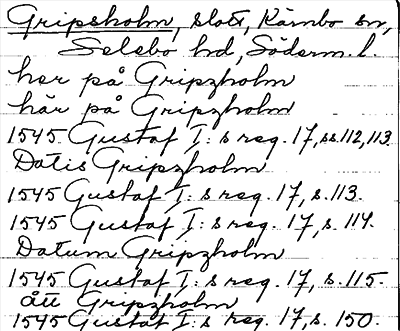 Gripsholm, slott, Kärnbo sn,
Selebo hd, Söderm. l.
her på Gripzholm
här på Gripzholm
1545 Gustaf I:s reg. 17, ss. 112, 113.
Datis Gripzholm
1545 Gustaf I:s reg. 17, s. 113.
1545 Gustaf I:s reg. 17, s. 114.
Datum Gripzholm
1545 Gustaf I:s reg. 17, s. 115.
ått Gripzholm
1545 Gustaf I:s reg. 17, s. 150.